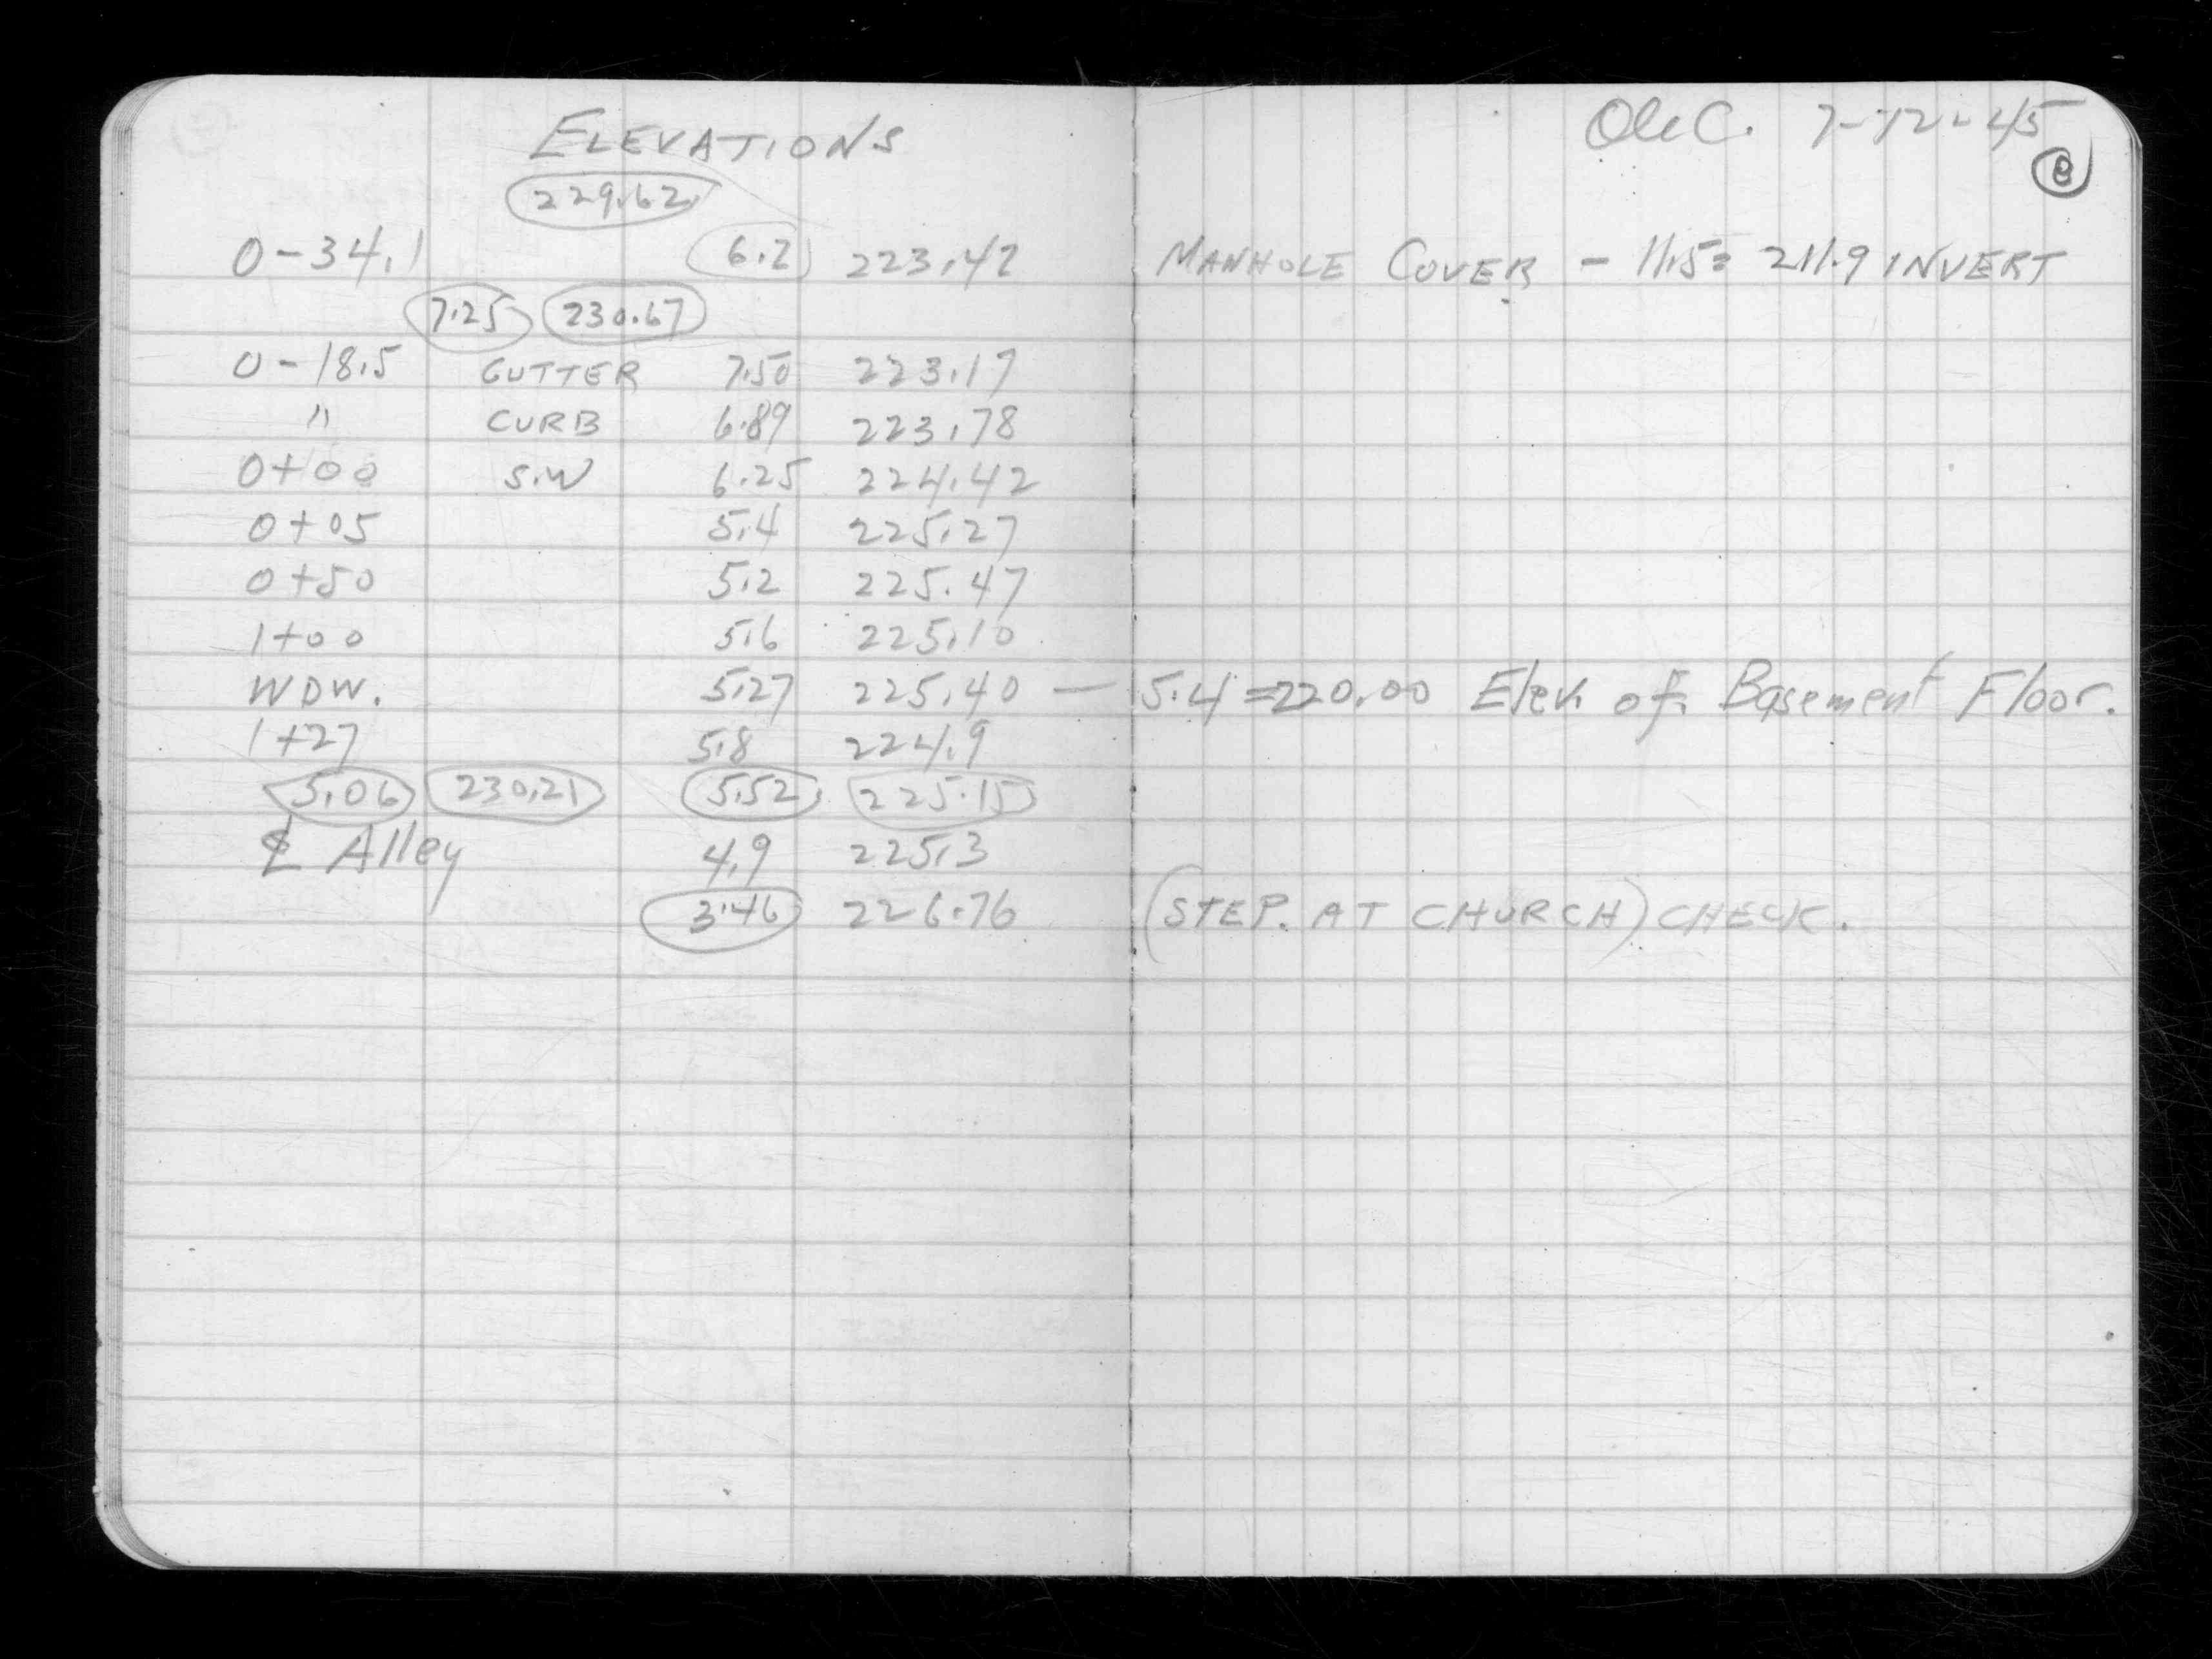 ELEVATIONS
229.62
0-34.1 6.2 223.42
7.25 230.67
0-18.5 GUTTER 7.50 223.17
" CURB 6.89 223.78
0+00 S.W 6.25 224.42
0+05 5.4 225.27
0+50 5.2 225.47
1+00 5.6 225.10
WDW. 5.27 225.40 —
1+27 5.8 224.9
5.06 230.21 5.52 225.15
℄ Alley 4.9 225.3
3.46 226.76
Ole C. 7-12-45
8
MANHOLE COVER - 11.5= 211.9 INVERT
5.4=220.00 Elev. of Basement Floor.
(STEP. AT CHURCH) CHECK.